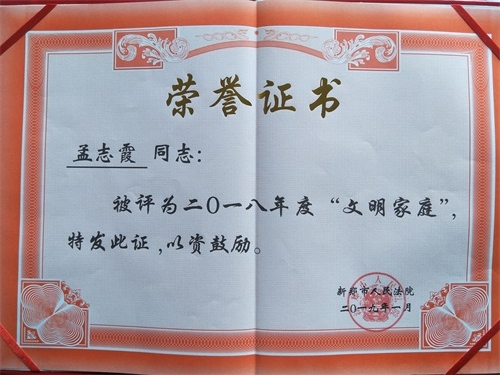 荣誉证书
孟志霞 同志：
被评为二〇一八年度“文明家庭”，
特发此证，以资鼓励。
新郑市人民法院
二〇一九年一月